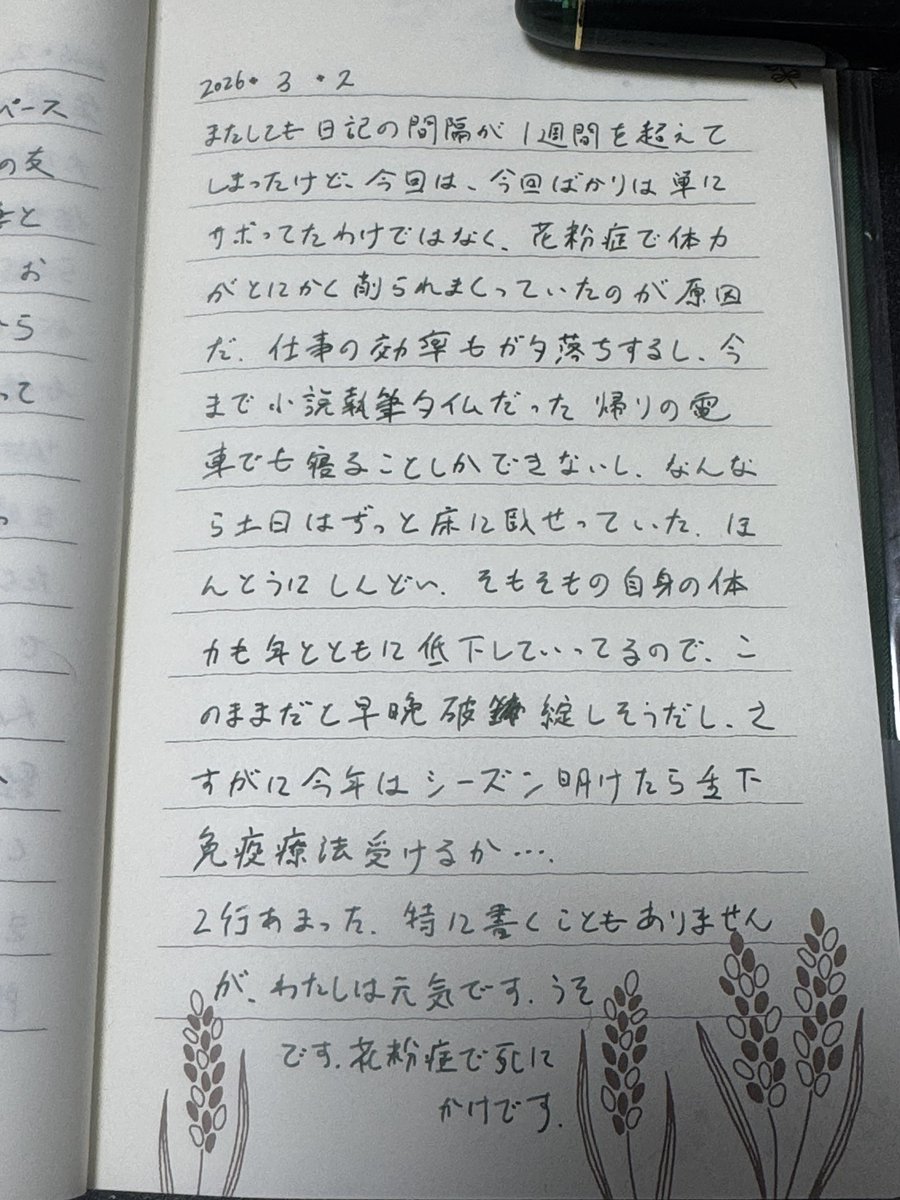 ペース
の友
と
お
から
って
2026・3・2
またしても日記の間隔が1週間を超えて
しまったけど、今回は、今回ばかりは単に
サボってたわけではなく、花粉症で体力
がとにかく削られまくっていたのが原因
だ。仕事の効率もガタ落ちするし、今
まで小説執筆タイムだった帰りの電
車でも寝ることしかできないし、なんな
ら土日はずっと床に臥せっていた。ほ
んとうにしんどい。そもそもの自身の体
力も年とともに低下していってるので、こ
のままだと早晩破綻しそうだし、さ
すがに今年はシーズン明けたら舌下
免疫療法受けるか…。
2行あまった。特に書くこともありません
が、わたしは元気です。うそ
です。花粉症で死に
かけです。